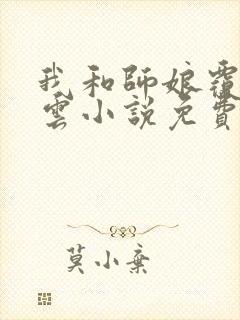 我和師娘覆
雲小說免費
莫小棄